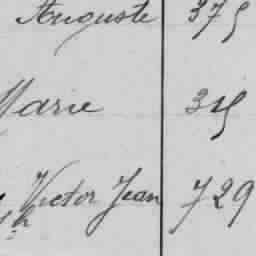 Auguste 375
Marie 345
Victor Jean 729